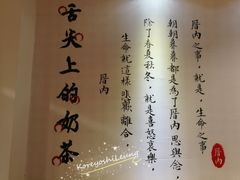 舌尖上的奶茶
厝內之事，就是，生命之事
朝朝暮暮都是為了厝內 思與念
除了春夏秋冬，就是喜怒哀樂，
生命就這樣 悲歡 離合
厝內
厝內
KoreyoshiLeung